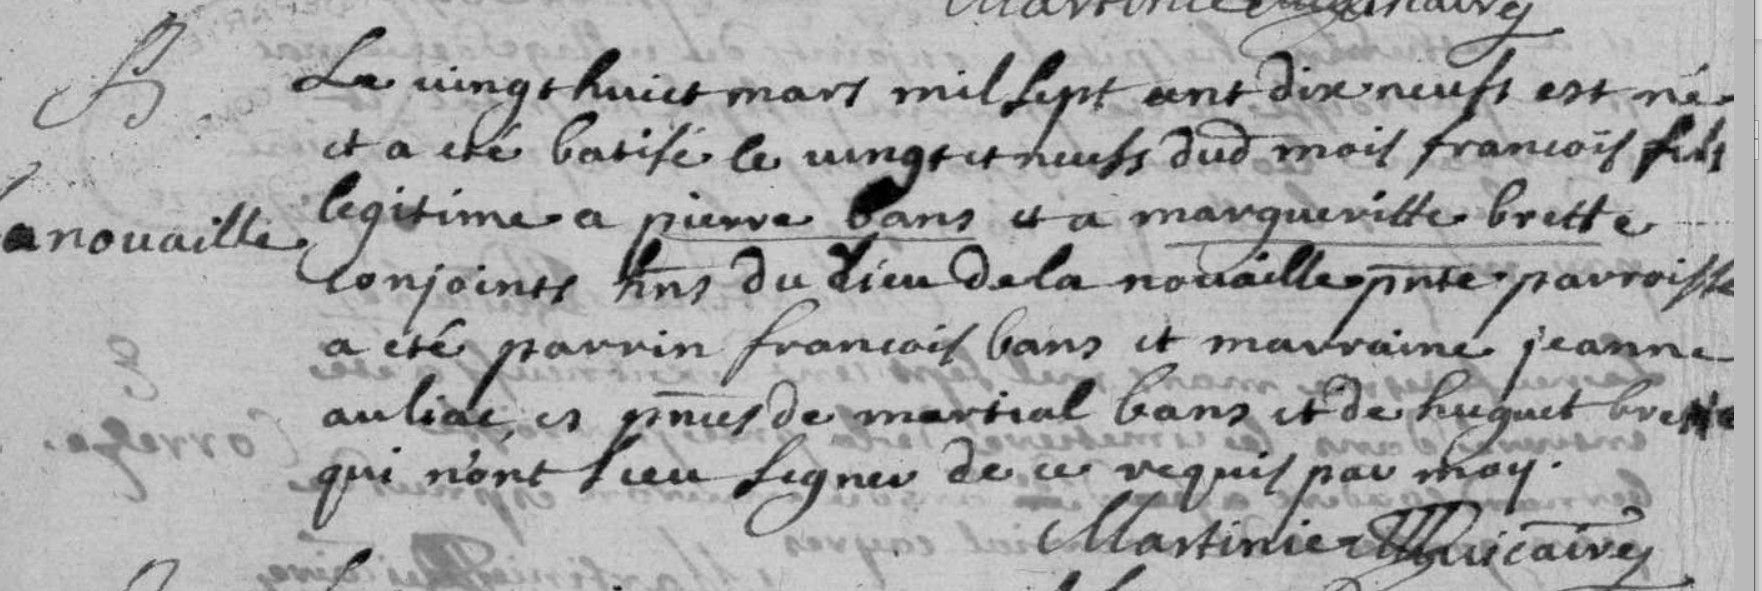 Martinie vicaire
B
Le vingt huict mars mil sept cent dix neufs est né
et a eté batisé le vingt et neufs dud mois francois fils
legitime a pierre bans et a margueritte brette
lanouaille
conjoints hñs du Lieu de la nouaille pñte parroisse
a eté parrin francois bans et marraine jeanne
auliac, es pñces de martial bans et de huguet brette
qui n'ont sceu signer de ce requis par moy.
Martinie vicaire